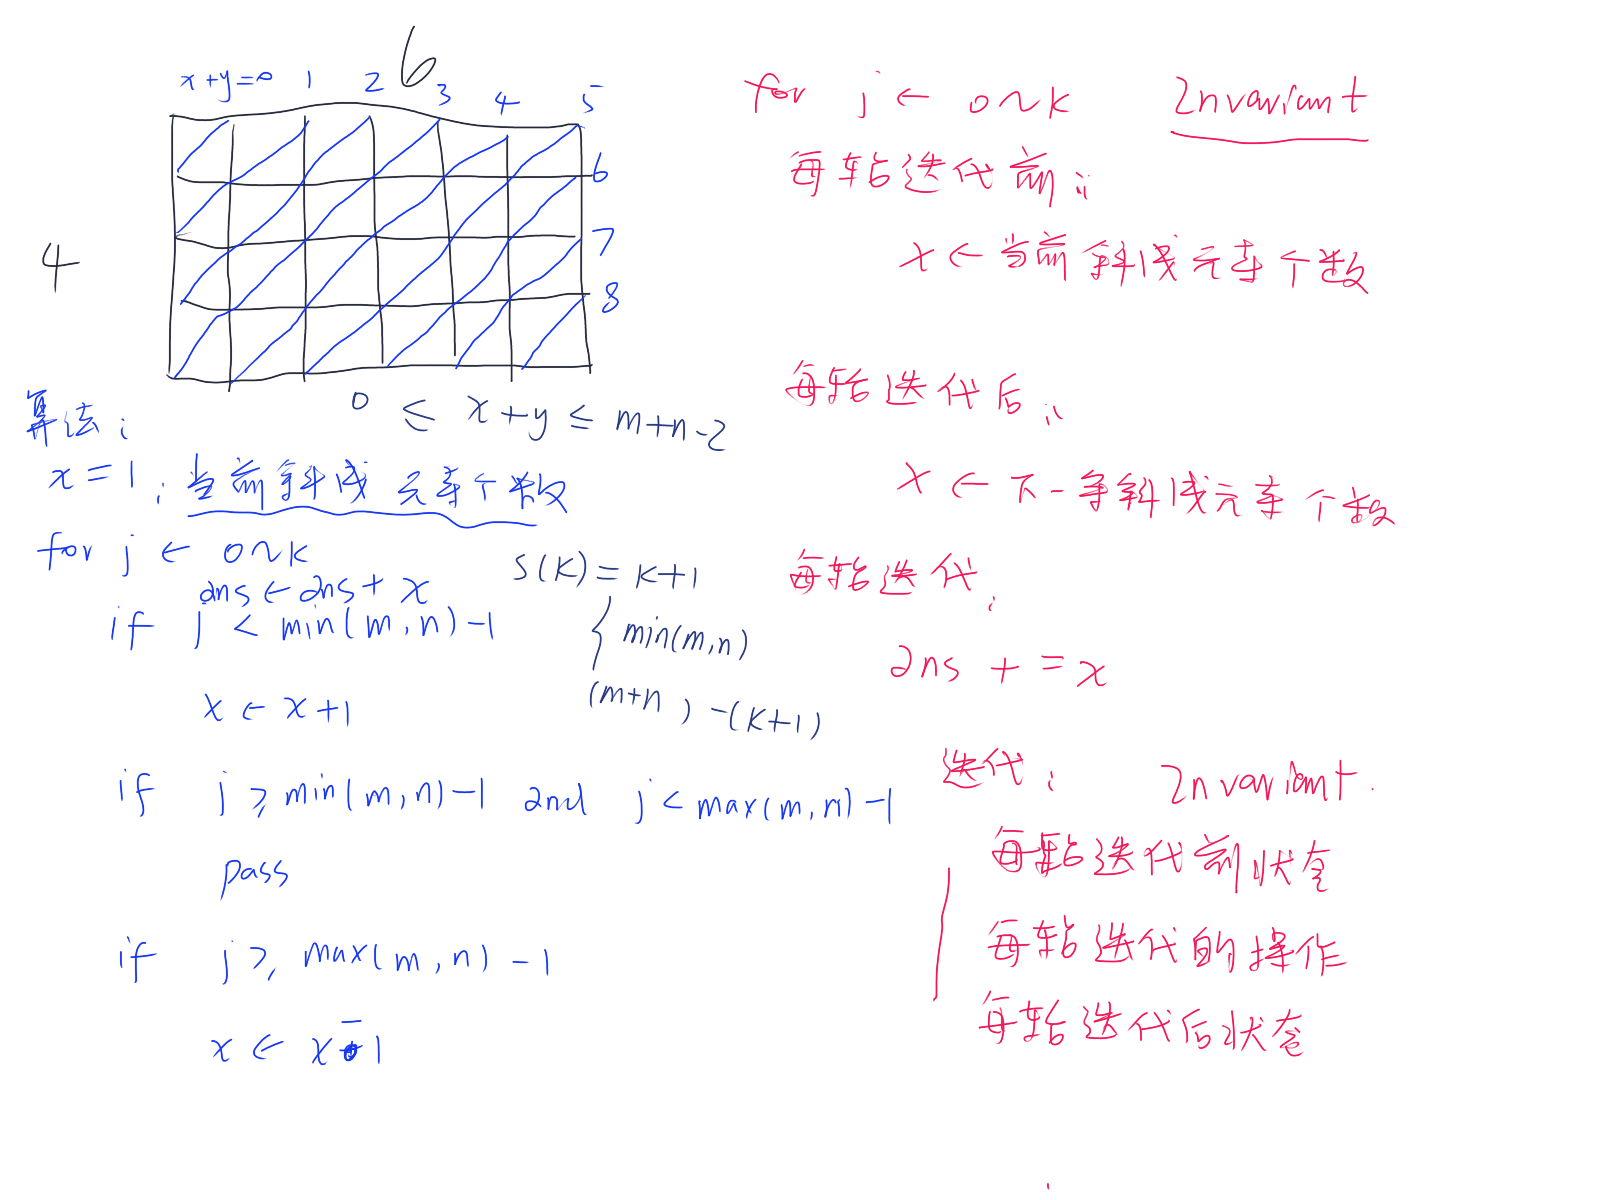 6
x+y=0 1 2 3 4 5
6
7
8
4
0 ≤ x+y ≤ m+n-2
算法:
x=1: 当前斜线元素个数
for j ← 0~k
ans ← ans + x
if j < min(m,n)-1
x ← x+1
if j ≥ min(m,n)-1 and j < max(m,n)-1
pass
if j ≥ max(m,n)-1
x ← x-1
S(k) = k+1
{ min(m,n)
(m+n) -(k+1)
for j ← 0~k Invariant
每轮迭代前:
x ← 当前斜线元素个数
每轮迭代后:
x ← 下一条斜线元素个数
每轮迭代:
ans += x
迭代: Invariant.
每轮迭代前状态
每轮迭代的操作
每轮迭代后状态